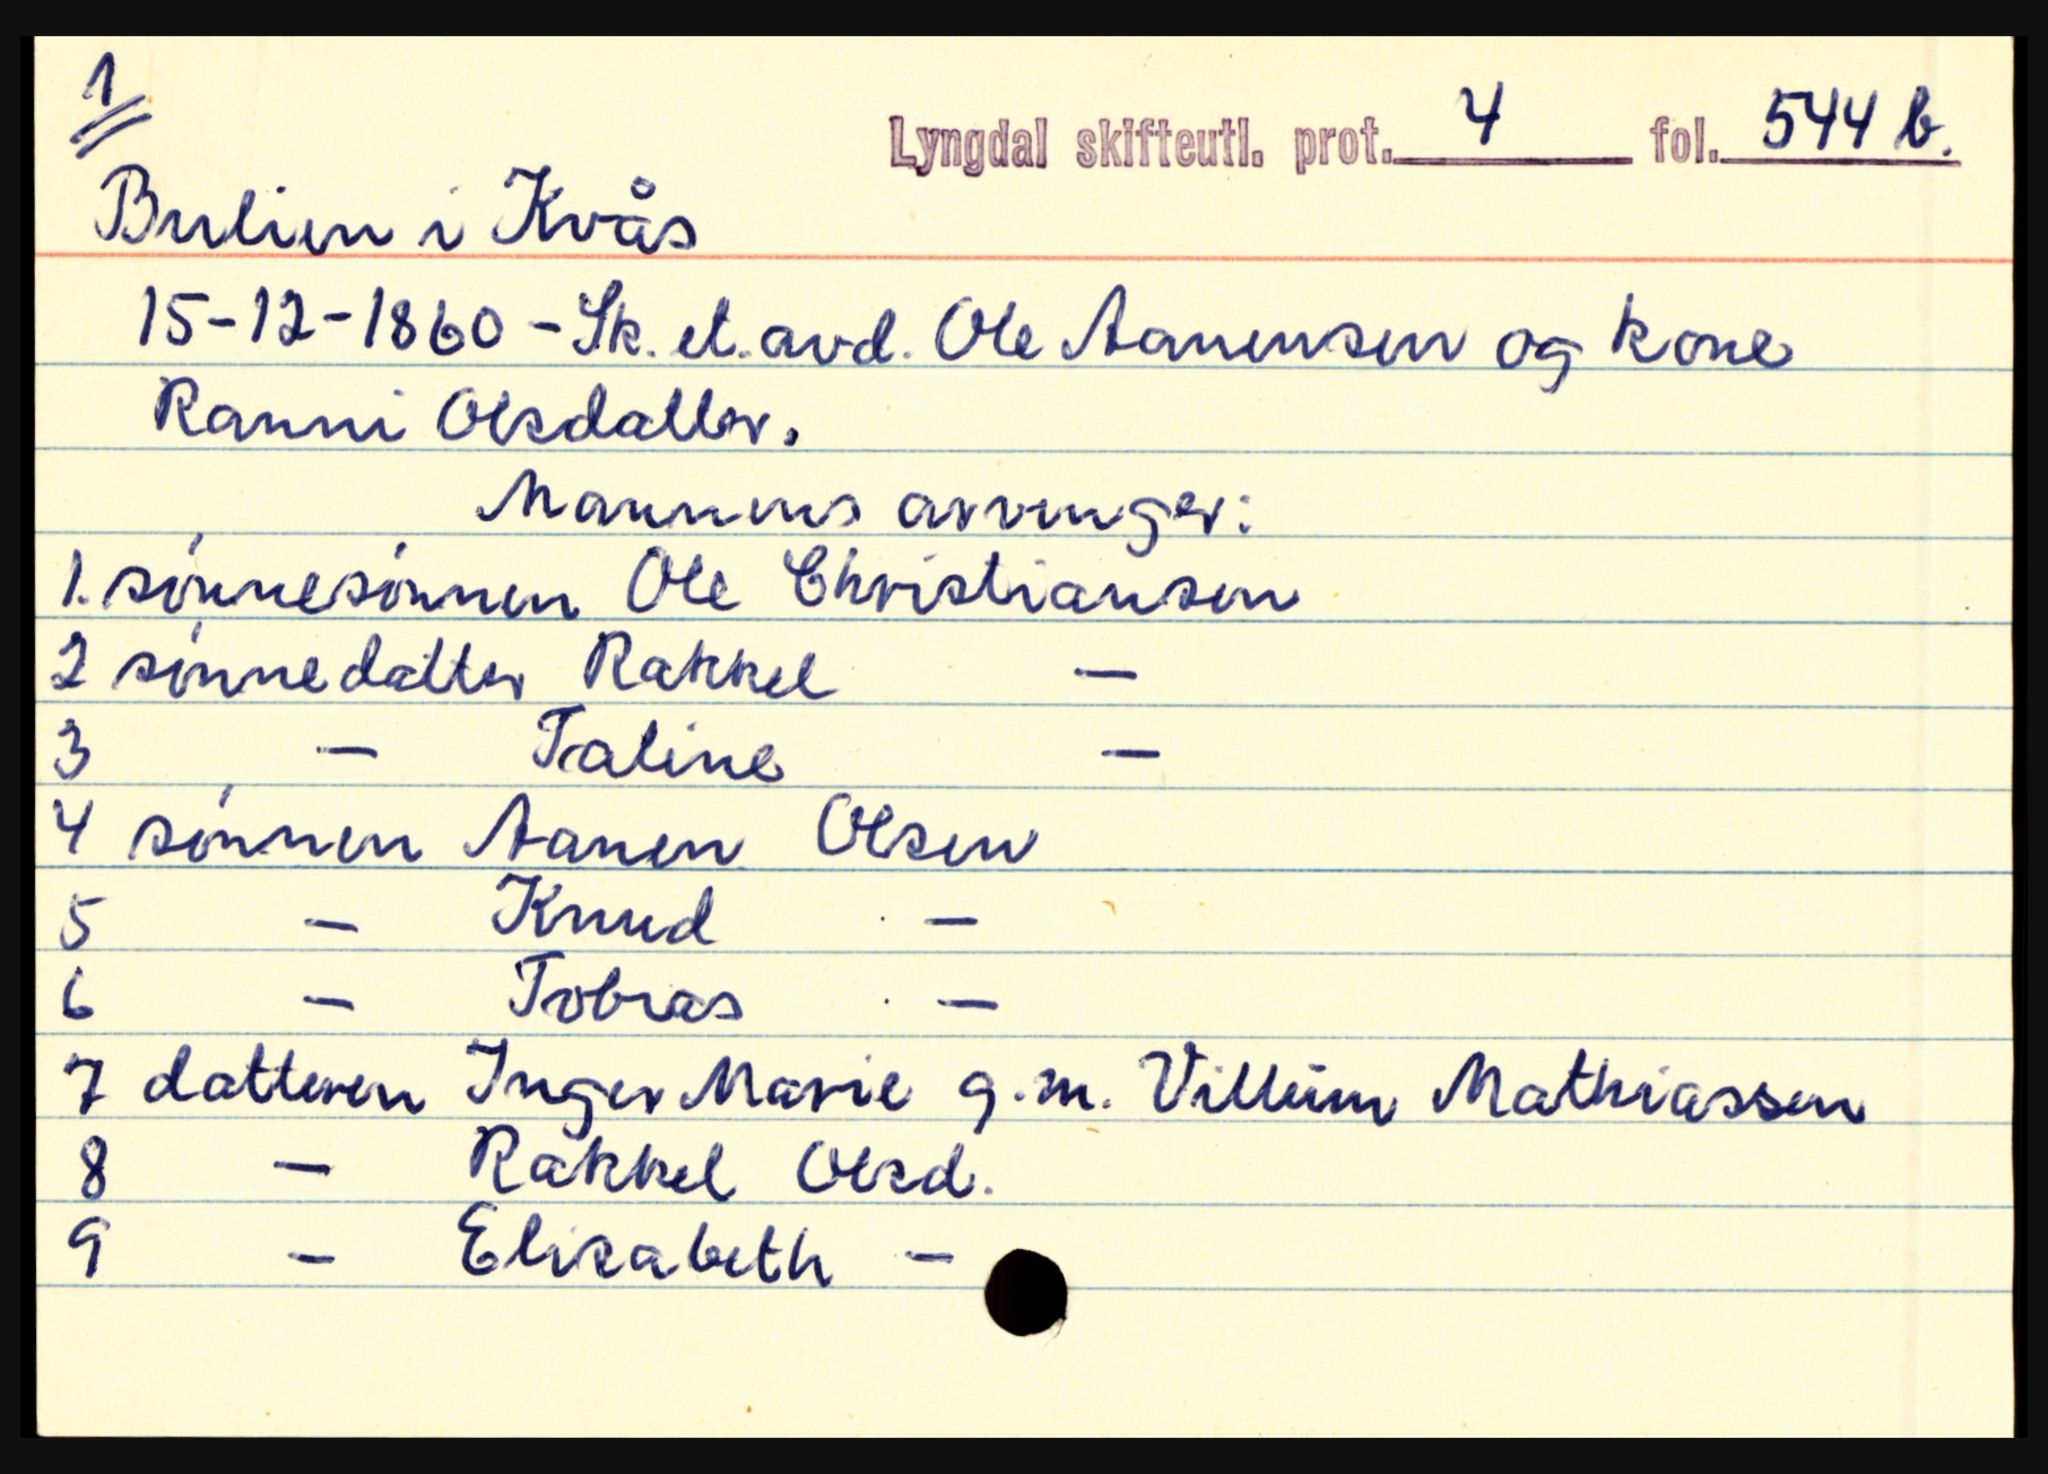 1
Lyngdal skifteutl. prot. 4 fol. 544 b.
Bulien i Kvås
15-12-1860 - Sk. et. avd. Ole Aanensen og kone
Ranni Olsdatter.
Mannens arvinger:
1. sønnesønnen Ole Christiansen
2 sønnedatter Rakkel —
3 — Taline —
4 sønnen Aanen Olsen
5 — Knud —
6 — Tobias —
7 datteren Inger Marie g.m. Villum Mathiassen
8 — Rakkel Olsd.
9 — Elisabeth —